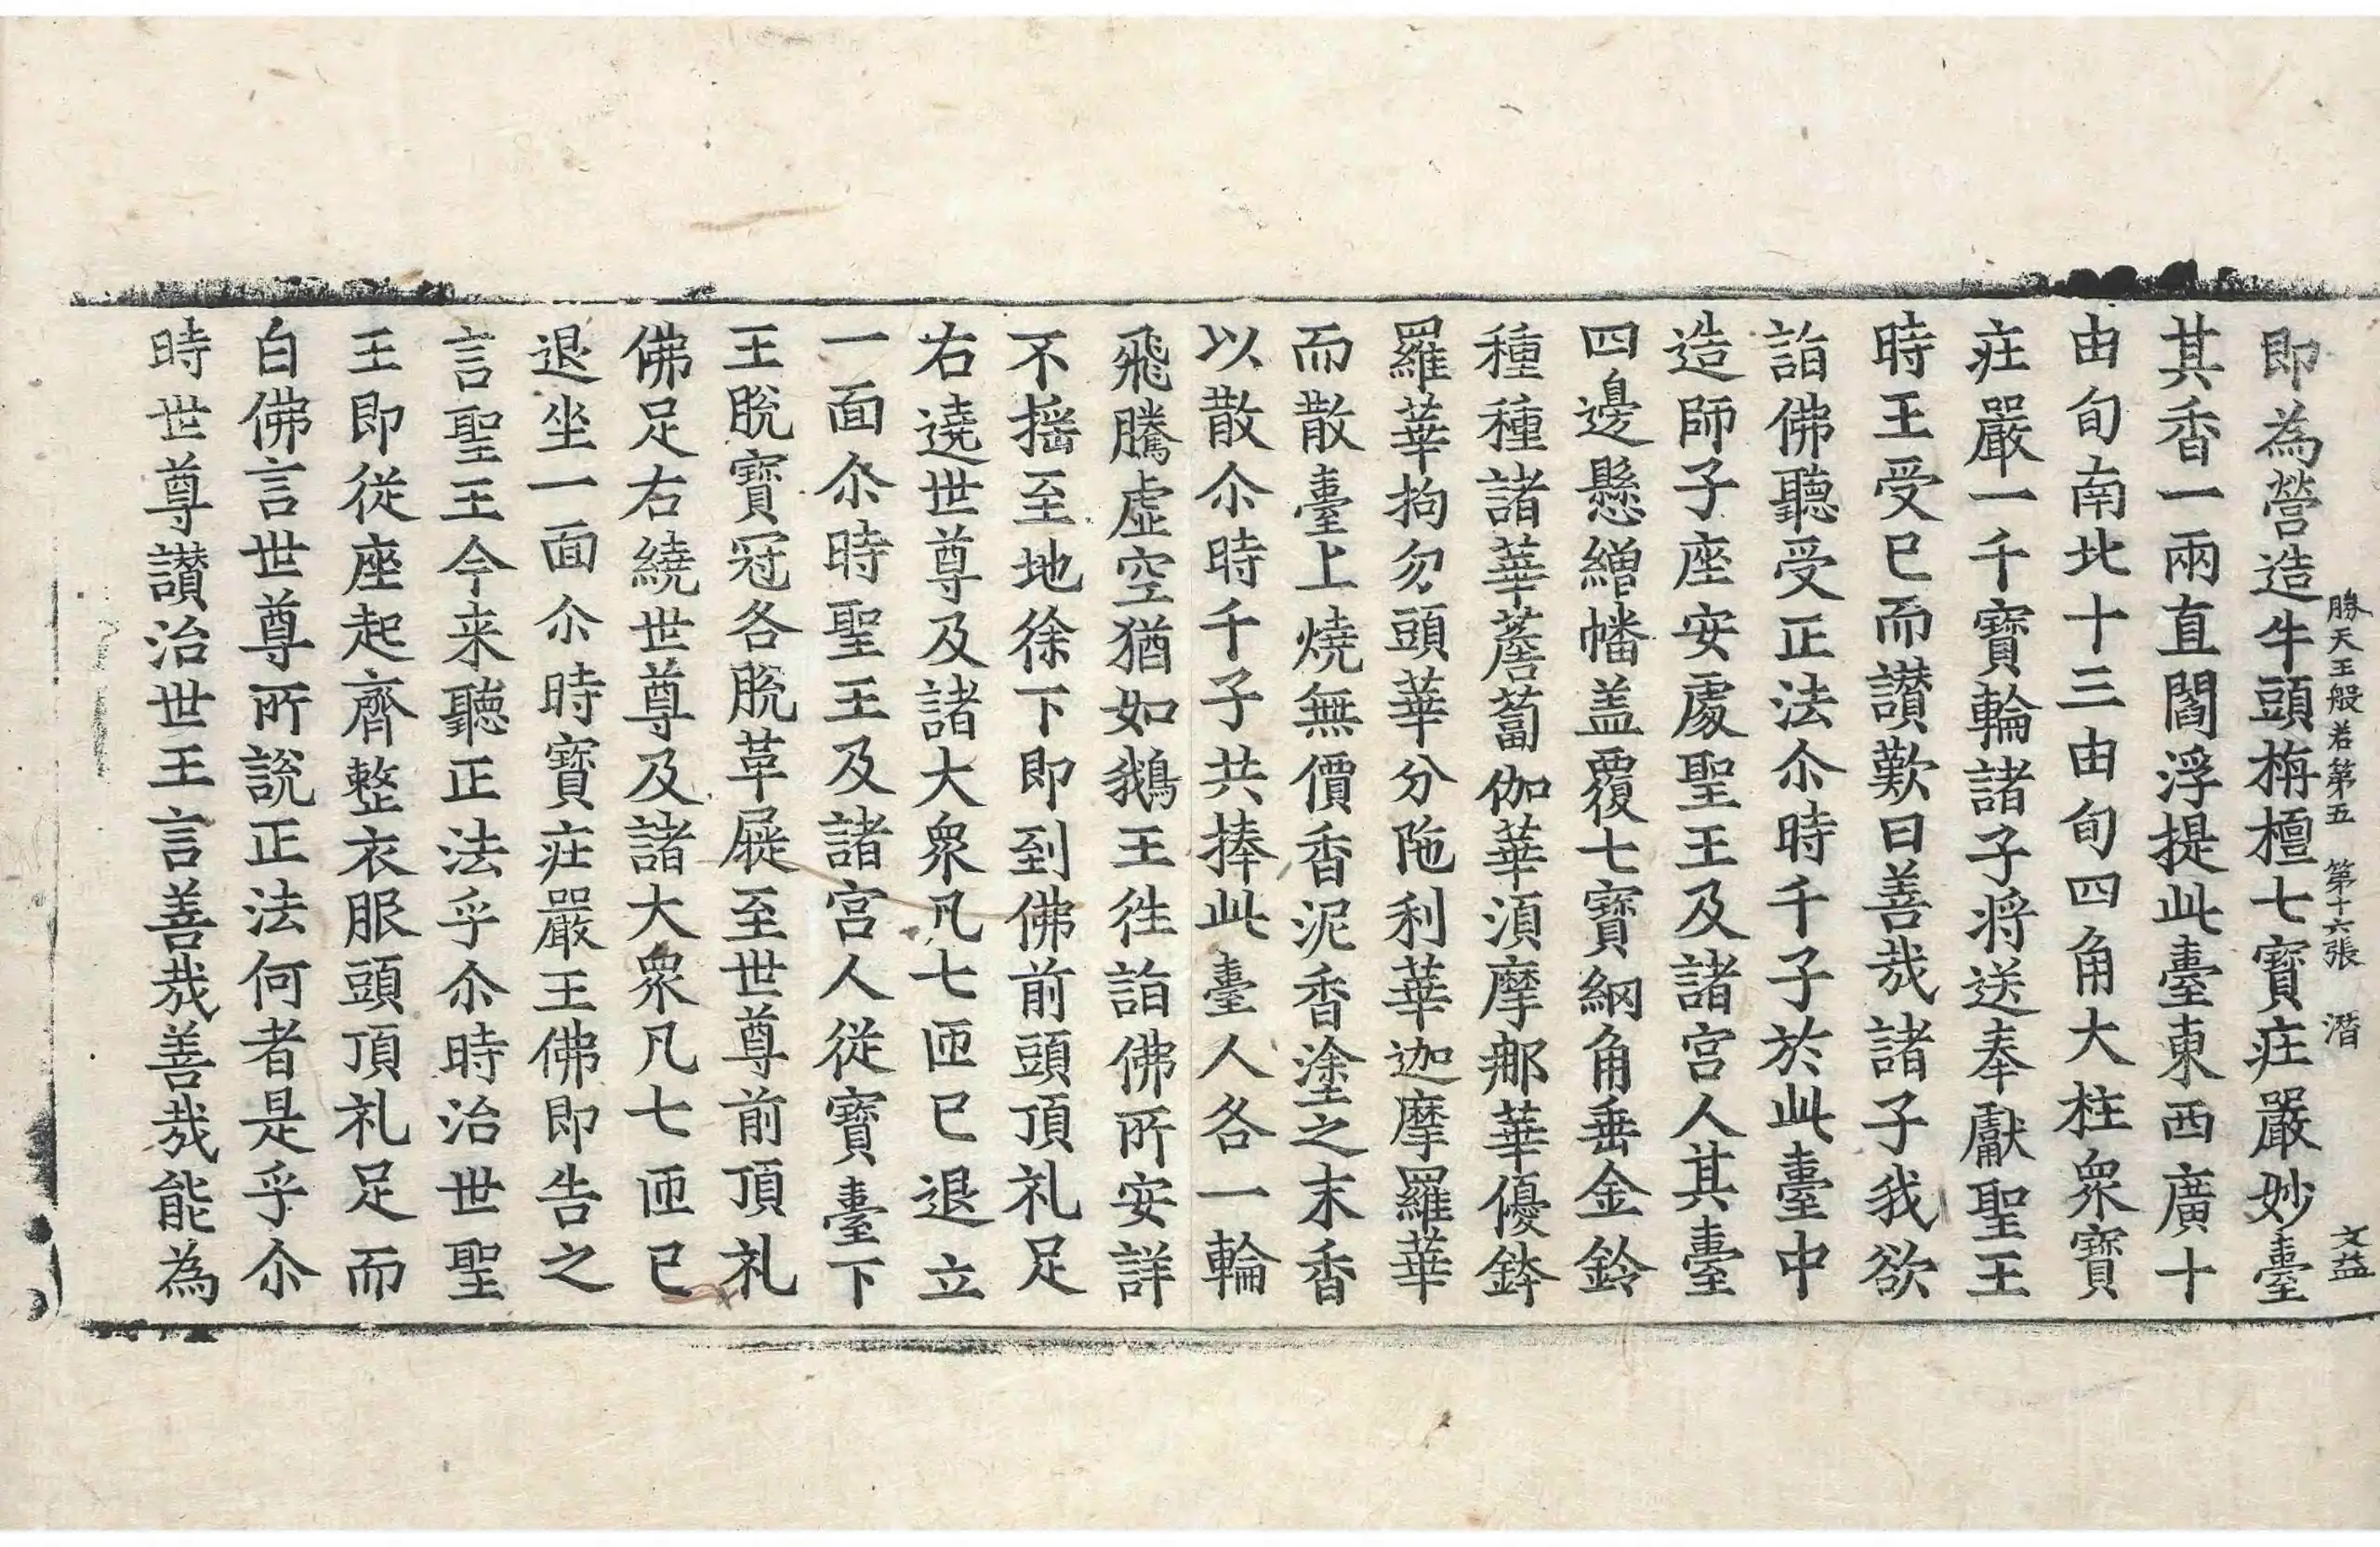 勝天王般若第五　第十六張　潛　文益
即為營造牛頭栴檀七寶莊嚴妙臺
其香一兩直閻浮提此臺東西廣十
由旬南北十三由旬四角大柱眾寶
庄嚴一千寶輪諸子將送奉獻聖王
時王受已而讃歎曰善哉諸子我欲
詣佛聽受正法尒時千子於此臺中
造師子座安處聖王及諸宮人其臺
四邊懸繒幡盖覆七寶網角垂金鈴
種種諸華薝蔔伽華須摩那華優鉢
羅華拘勿頭華分陁利華迦摩羅華
而散臺上燒無價香泥香塗之末香
以散尒時千子共捧此臺人各一輪
飛騰虛空猶如鵝王往詣佛所安詳
不搖至地徐下即到佛前頭頂礼足
右遶世尊及諸大眾凡七匝已退立
一面尒時聖王及諸宮人從寶臺下
王脫寶冠各脫革屣至世尊前頂礼
佛足右繞世尊及諸大眾凡七匝已
退坐一面尒時寶庄嚴王佛即告之
言聖王今来聽正法乎尒時治世聖
王即從座起齊整衣服頭頂礼足而
白佛言世尊所說正法何者是乎尒
時世尊讃治世王言善哉善哉能為